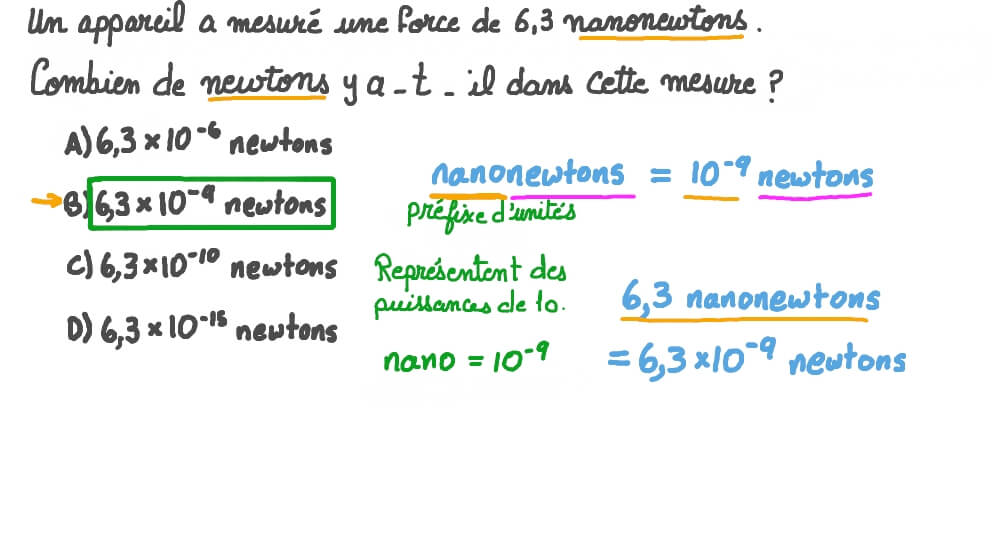 Un appareil a mesuré une force de 6,3 nanonewtons.
Combien de newtons y a-t-il dans cette mesure ?
A) 6,3 × 10⁻⁶ newtons
B) 6,3 × 10⁻⁹ newtons
C) 6,3 × 10⁻¹⁰ newtons
D) 6,3 × 10⁻¹⁵ newtons
nanonewtons = 10⁻⁹ newtons
préfixe d'unités
Représentent des
puissances de 10.
nano = 10⁻⁹
6,3 nanonewtons
= 6,3 × 10⁻⁹ newtons